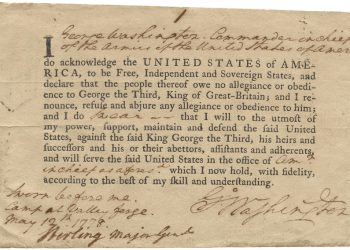 1
I George Washington Commander in chief
of the Armies of the United States of America
do acknowledge the UNITED STATES of AME-
RICA, to be Free, Independent and Sovereign States, and
declare that the people thereof owe no allegiance or obedi-
ence to George the Third, King of Great-Britain; and I re-
nounce, refuse and abjure any allegiance or obedience to him;
and I do swear that I will to the utmost of
my power, support, maintain and defend the said United
States, against the said King George the Third, his heirs
and successors and his or their abettors, assistants and adherents,
and will serve the said United States in the office of Com
in chief as aforesd which I now hold, with fidelity,
according to the best of my skill and understanding.
Sworn before me
Camp at Valley Forge
May 12th 1778
Go Washington
Stirling Major Genl